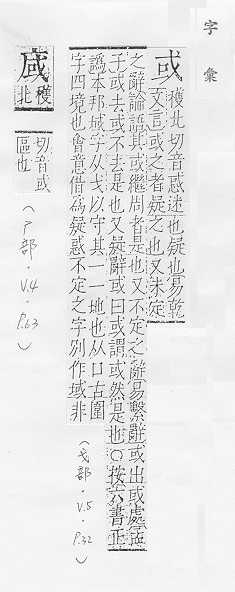 字彙
或
穫北切音惑迷也疑也易乾
文言或之者疑之也又未定
之辭論語其或繼周者是也又不定之辭易繫辭或出或處孟
子或去或不去是也又疑辭或曰或謂或然是也○按六書正
譌本邦域字从戈以守其一一地也从口古圍
字四境也會意借為疑惑不定之字別作域非
(戈部·V.5·P.32)
㦯
穫北
切音或
區也
(戶部·V.4·P.63)